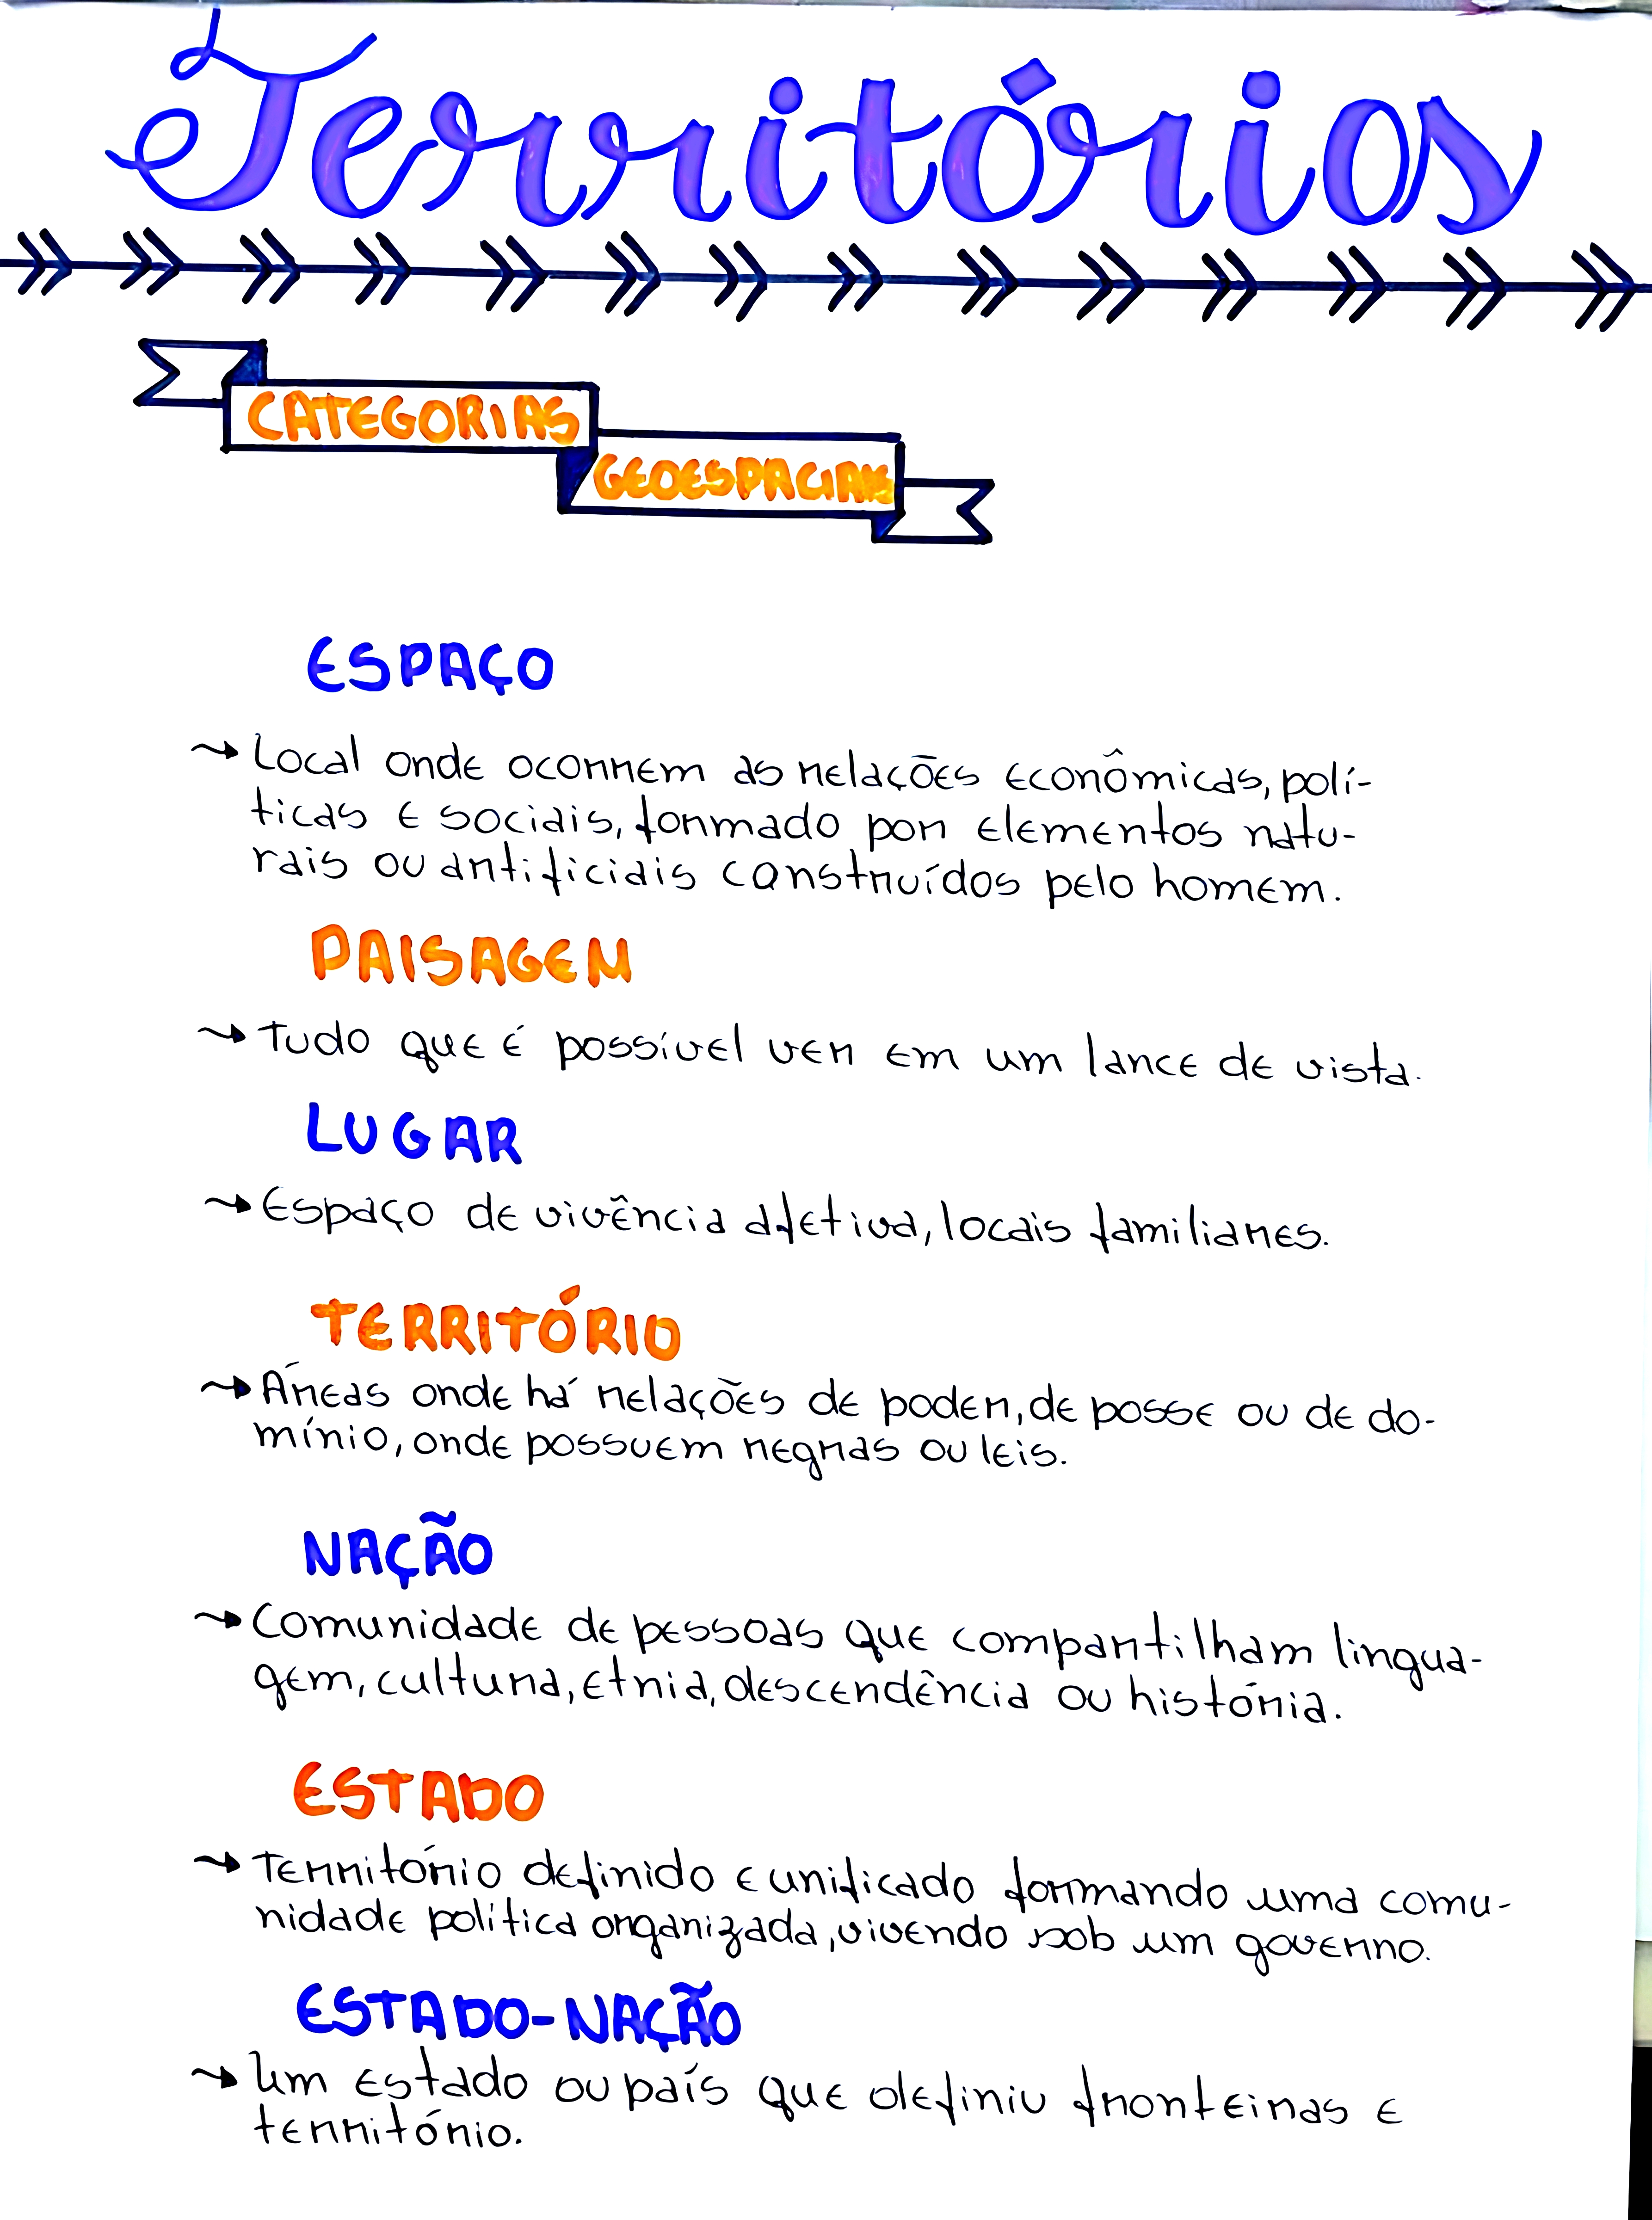 Territórios
CATEGORIAS
GEOESPACIAIS
ESPAÇO
→ Local onde ocorrem as relações econômicas, polí-
ticas e sociais, formado por elementos natu-
rais ou artificiais construídos pelo homem.
PAISAGEM
→ Tudo que é possível ver em um lance de vista.
LUGAR
→ Espaço de vivência afetiva, locais familiares.
TERRITÓRIO
→ Áreas onde há relações de poder, de posse ou de do-
mínio, onde possuem regras ou leis.
NAÇÃO
→ Comunidade de pessoas que compartilham lingua-
gem, cultura, etnia, descendência ou história.
ESTADO
→ Território definido e unificado formando uma comu-
nidade política organizada, vivendo sob um governo.
ESTADO-NAÇÃO
→ Um estado ou país que definiu fronteiras e
território.